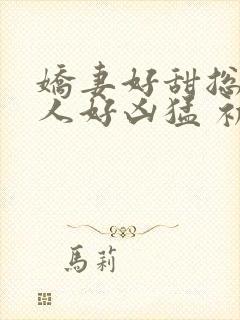 嬌妻好甜总
人好凶猛
馬莉